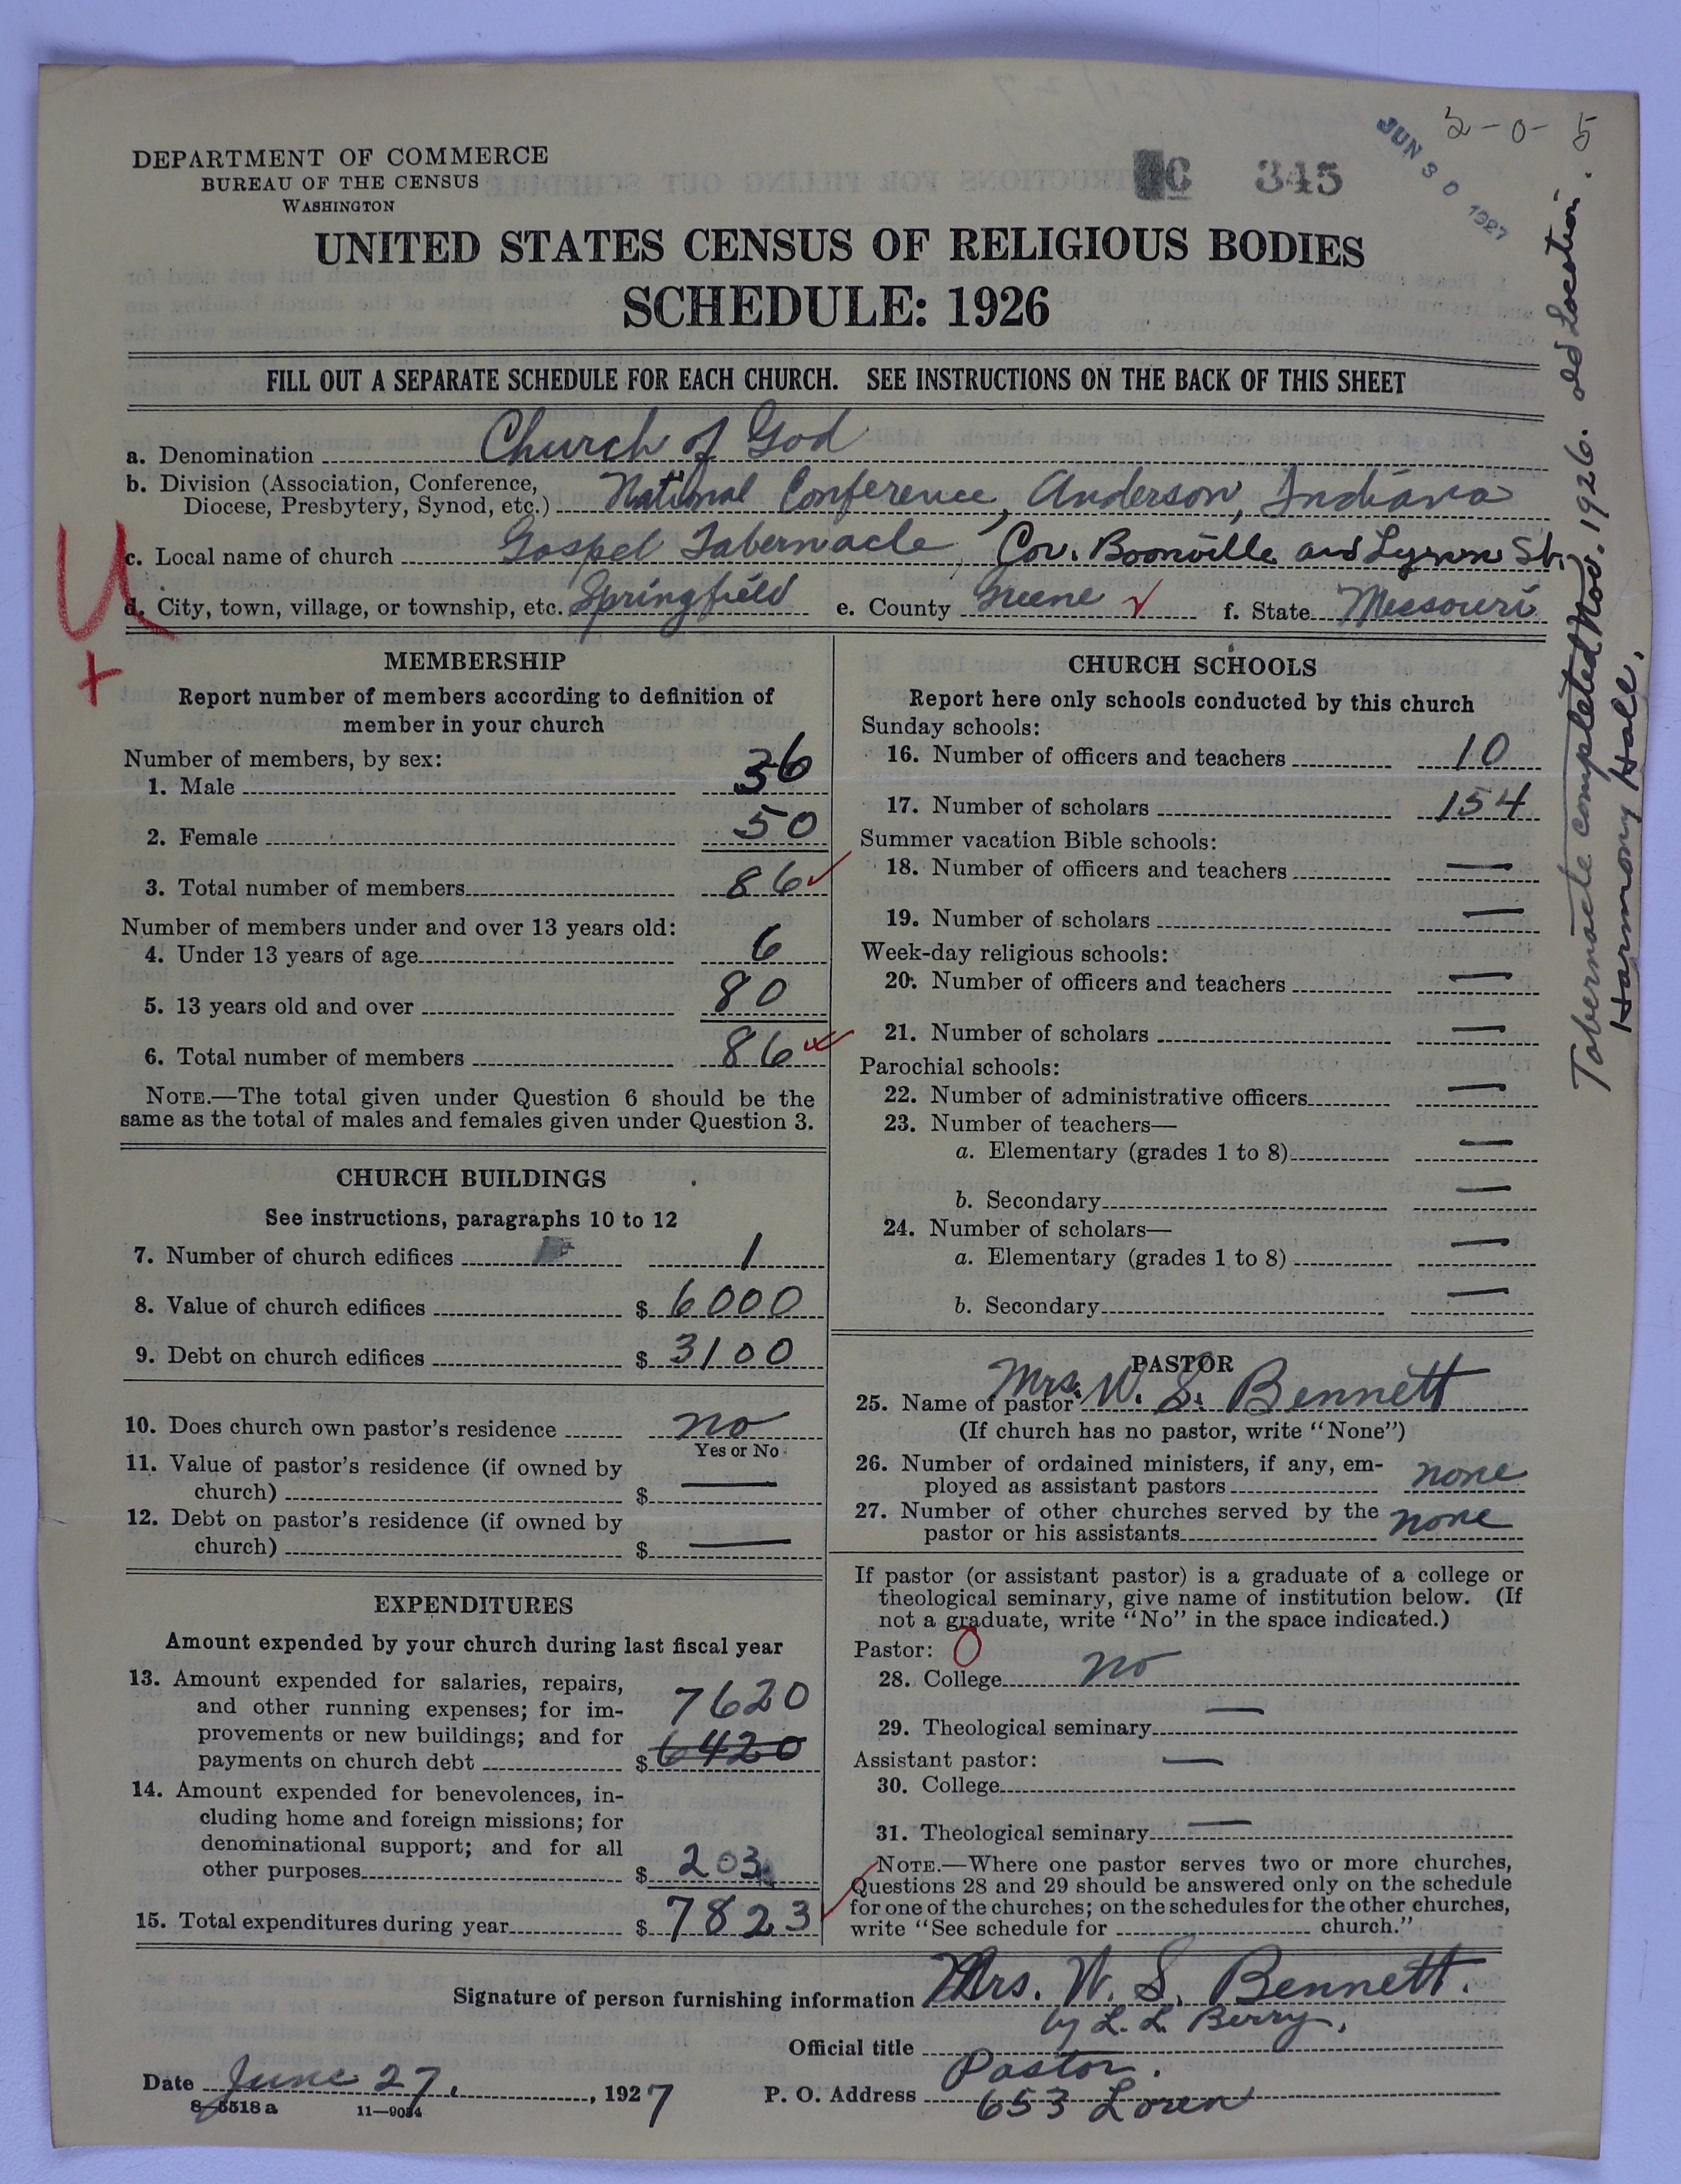 2-0-5
JUN 30 1927
345
DEPARTMENT OF COMMERCE
BUREAU OF THE CENSUS
WASHINGTON
UNITED STATES CENSUS OF RELIGIOUS BODIES
SCHEDULE: 1926
FILL OUT A SEPARATE SCHEDULE FOR EACH CHURCH. SEE INSTRUCTIONS ON THE BACK OF THIS SHEET
a. Denomination Church of God
b. Division (Association, Conference,
Diocese, Presbytery, Synod, etc.) National Conference, Anderson, Indiana
c. Local name of church Gospel Tabernacle, Cor. Boonville and Lynn St.
d. City, town, village, or township, etc. Springfield e. County Greene f. State Missouri
U
+
Tabernacle completed Nov. 1926. old Location.
Harmony Hall.
MEMBERSHIP
Report number of members according to definition of
member in your church
Number of members, by sex:
1. Male 36
2. Female 50
3. Total number of members 86
Number of members under and over 13 years old:
4. Under 13 years of age 6
5. 13 years old and over 80
6. Total number of members 86
NOTE.—The total given under Question 6 should be the
same as the total of males and females given under Question 3.
CHURCH BUILDINGS
See instructions, paragraphs 10 to 12
7. Number of church edifices 1
8. Value of church edifices $ 6000
9. Debt on church edifices $ 3100
10. Does church own pastor's residence no
Yes or No
11. Value of pastor's residence (if owned by
church) $ —
12. Debt on pastor's residence (if owned by
church) $ —
EXPENDITURES
Amount expended by your church during last fiscal year
13. Amount expended for salaries, repairs,
and other running expenses; for im- 7620
provements or new buildings; and for
payments on church debt $ 6420
14. Amount expended for benevolences, in-
cluding home and foreign missions; for
denominational support; and for all
other purposes $ 203
15. Total expenditures during year $ 7823
CHURCH SCHOOLS
Report here only schools conducted by this church
Sunday schools:
16. Number of officers and teachers 10
17. Number of scholars 154
Summer vacation Bible schools:
18. Number of officers and teachers —
19. Number of scholars —
Week-day religious schools:
20. Number of officers and teachers —
21. Number of scholars —
Parochial schools:
22. Number of administrative officers —
23. Number of teachers—
a. Elementary (grades 1 to 8) —
b. Secondary —
24. Number of scholars—
a. Elementary (grades 1 to 8) —
b. Secondary —
PASTOR
25. Name of pastor Mrs. W. S. Bennett
(If church has no pastor, write "None")
26. Number of ordained ministers, if any, em-
ployed as assistant pastors none
27. Number of other churches served by the
pastor or his assistants none
If pastor (or assistant pastor) is a graduate of a college or
theological seminary, give name of institution below. (If
not a graduate, write "No" in the space indicated.)
Pastor: 0
28. College no
29. Theological seminary —
Assistant pastor:
30. College —
31. Theological seminary —
NOTE.—Where one pastor serves two or more churches,
Questions 28 and 29 should be answered only on the schedule
for one of the churches; on the schedules for the other churches,
write "See schedule for church."
Signature of person furnishing information Mrs. W. S. Bennett.
by L. L. Berry.
Official title Pastor.
Date June 27, 1927 P. O. Address 653 Loren
8-5518 a 11—9034